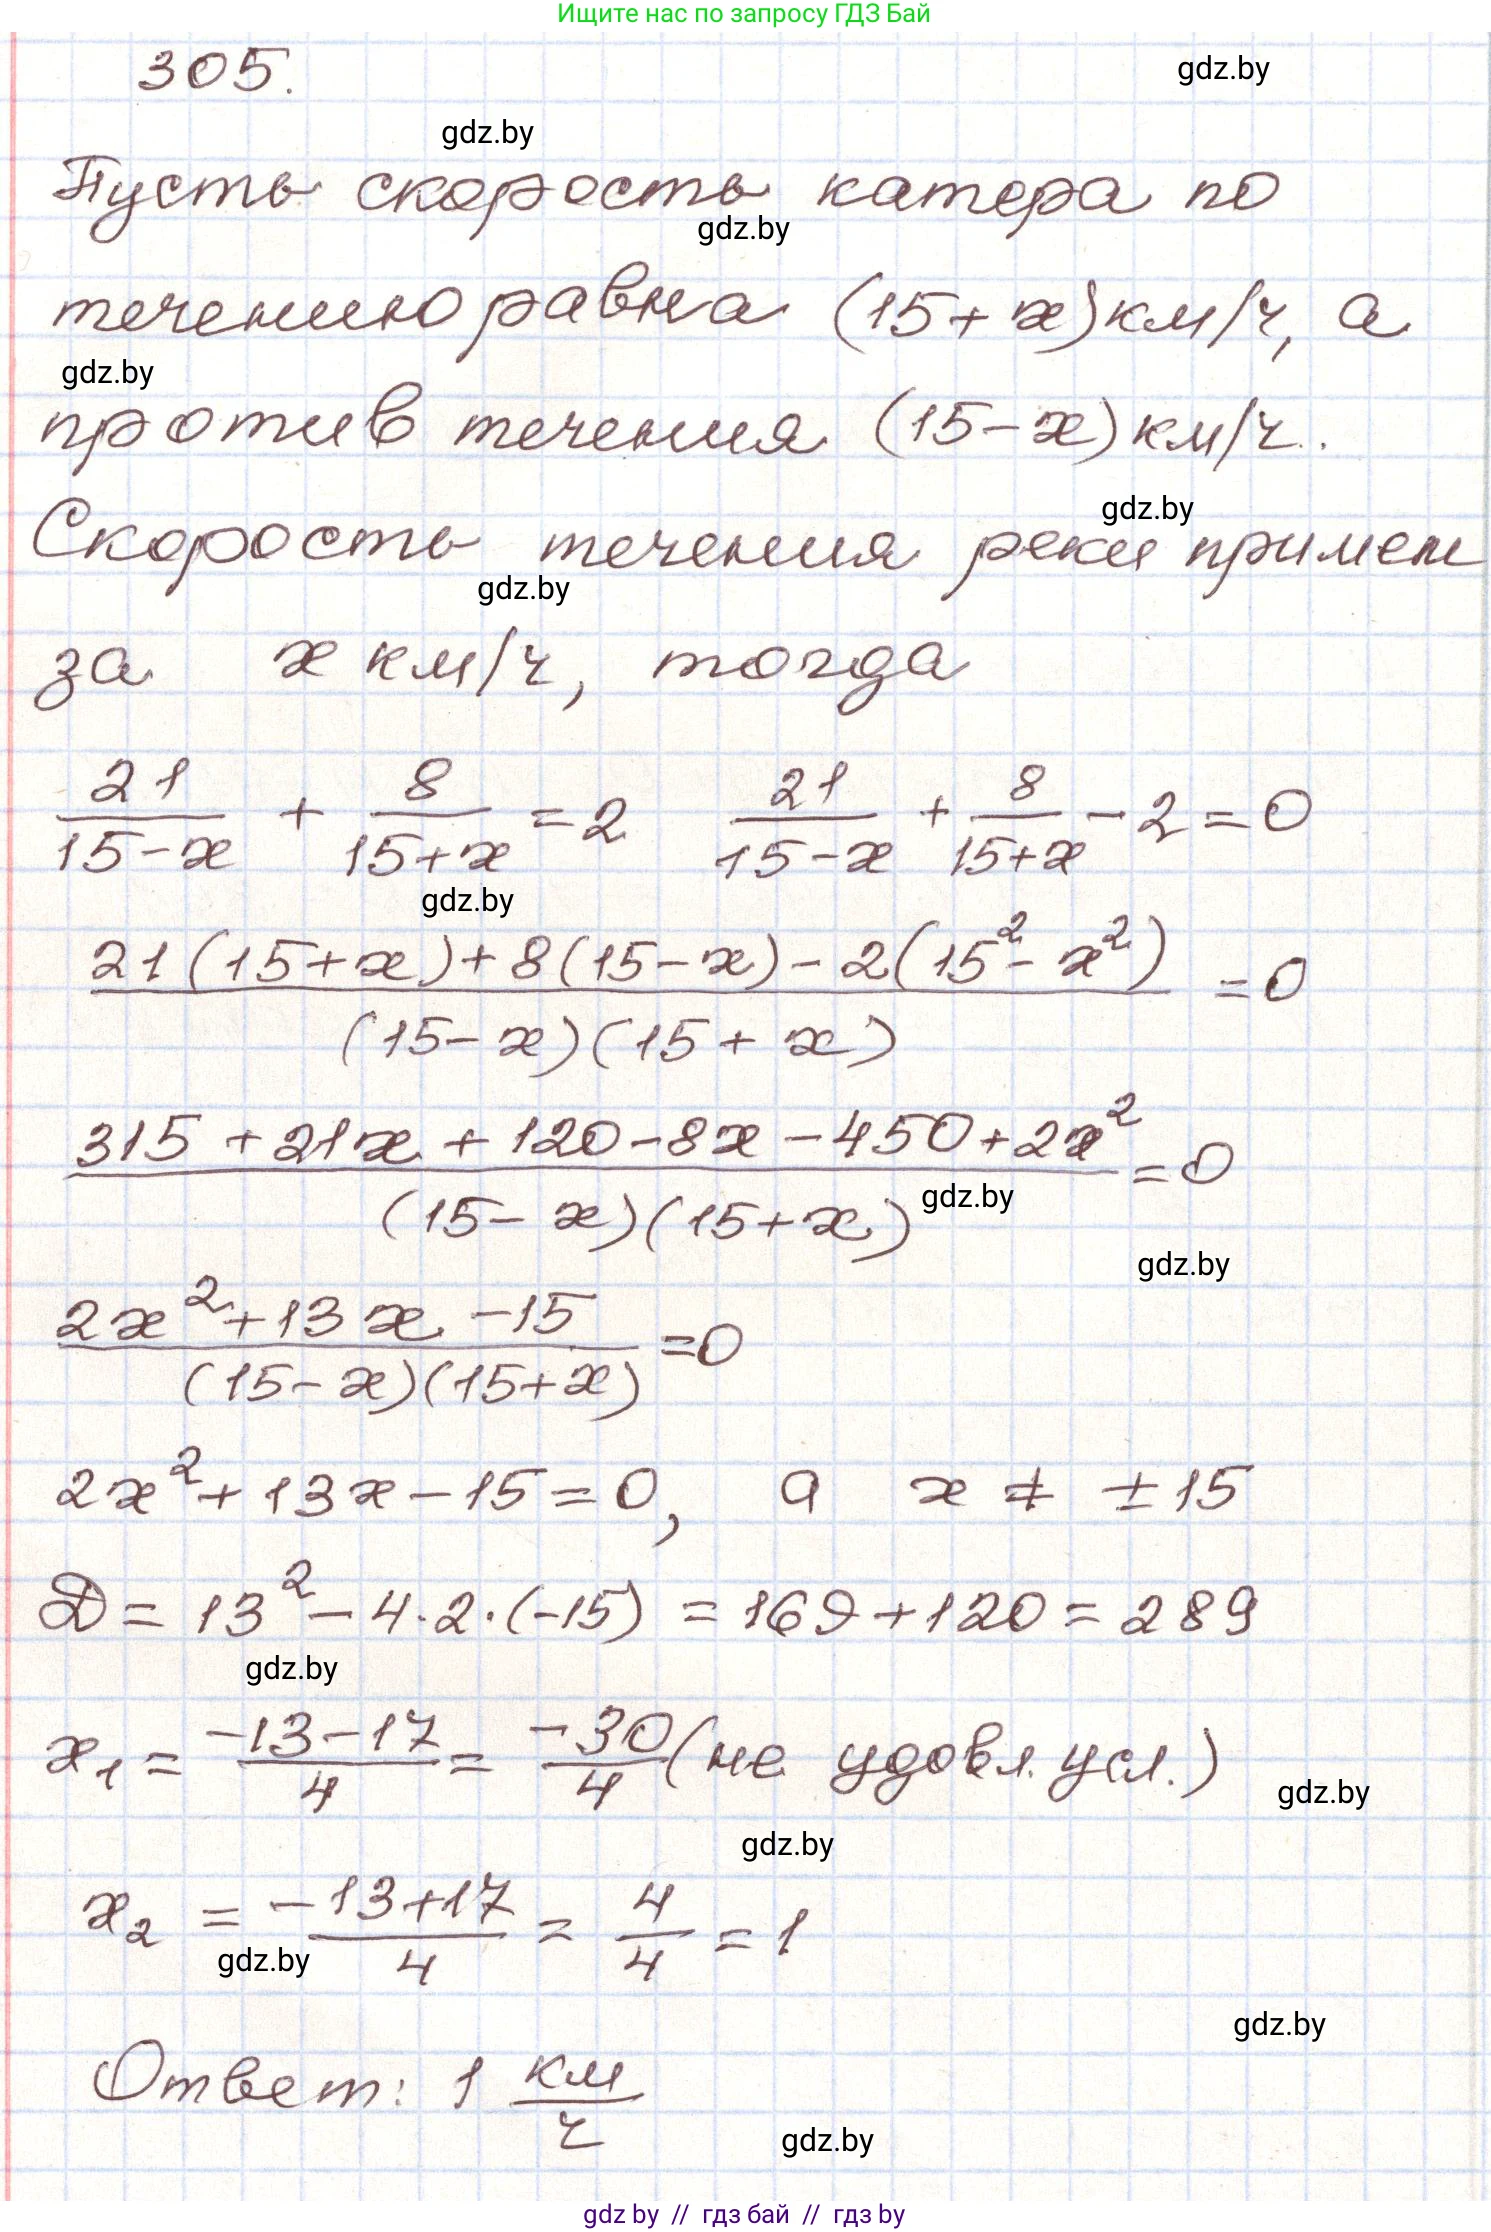 Ищите нас по запросу ГДЗ Бай
305.
gdz.by
gdz.by
Пусть скорость катера по
gdz.by
течению равна (15+x) км/ч, а
gdz.by
против течения (15-x) км/ч.
gdz.by
Скорость течения реки примем
gdz.by
за x км/ч, тогда
21/(15-x) + 8/(15+x) = 2   21/(15-x) + 8/(15+x) - 2 = 0
gdz.by
(21(15+x)+8(15-x)-2(15²-x²))/((15-x)(15+x)) = 0
(315+21x+120-8x-450+2x²)/((15-x)(15+x)) = 0
gdz.by
gdz.by
(2x²+13x-15)/((15-x)(15+x)) = 0
2x²+13x-15=0, а x ≠ ±15
D = 13²-4·2·(-15) = 169+120 = 289
gdz.by
x₁ = (-13-17)/4 = -30/4 (не удовл. усл.)
gdz.by
gdz.by
x₂ = (-13+17)/4 = 4/4 = 1
gdz.by
gdz.by
Ответ: 1 км/ч
gdz.by
gdz by // гдз бай // гдз by